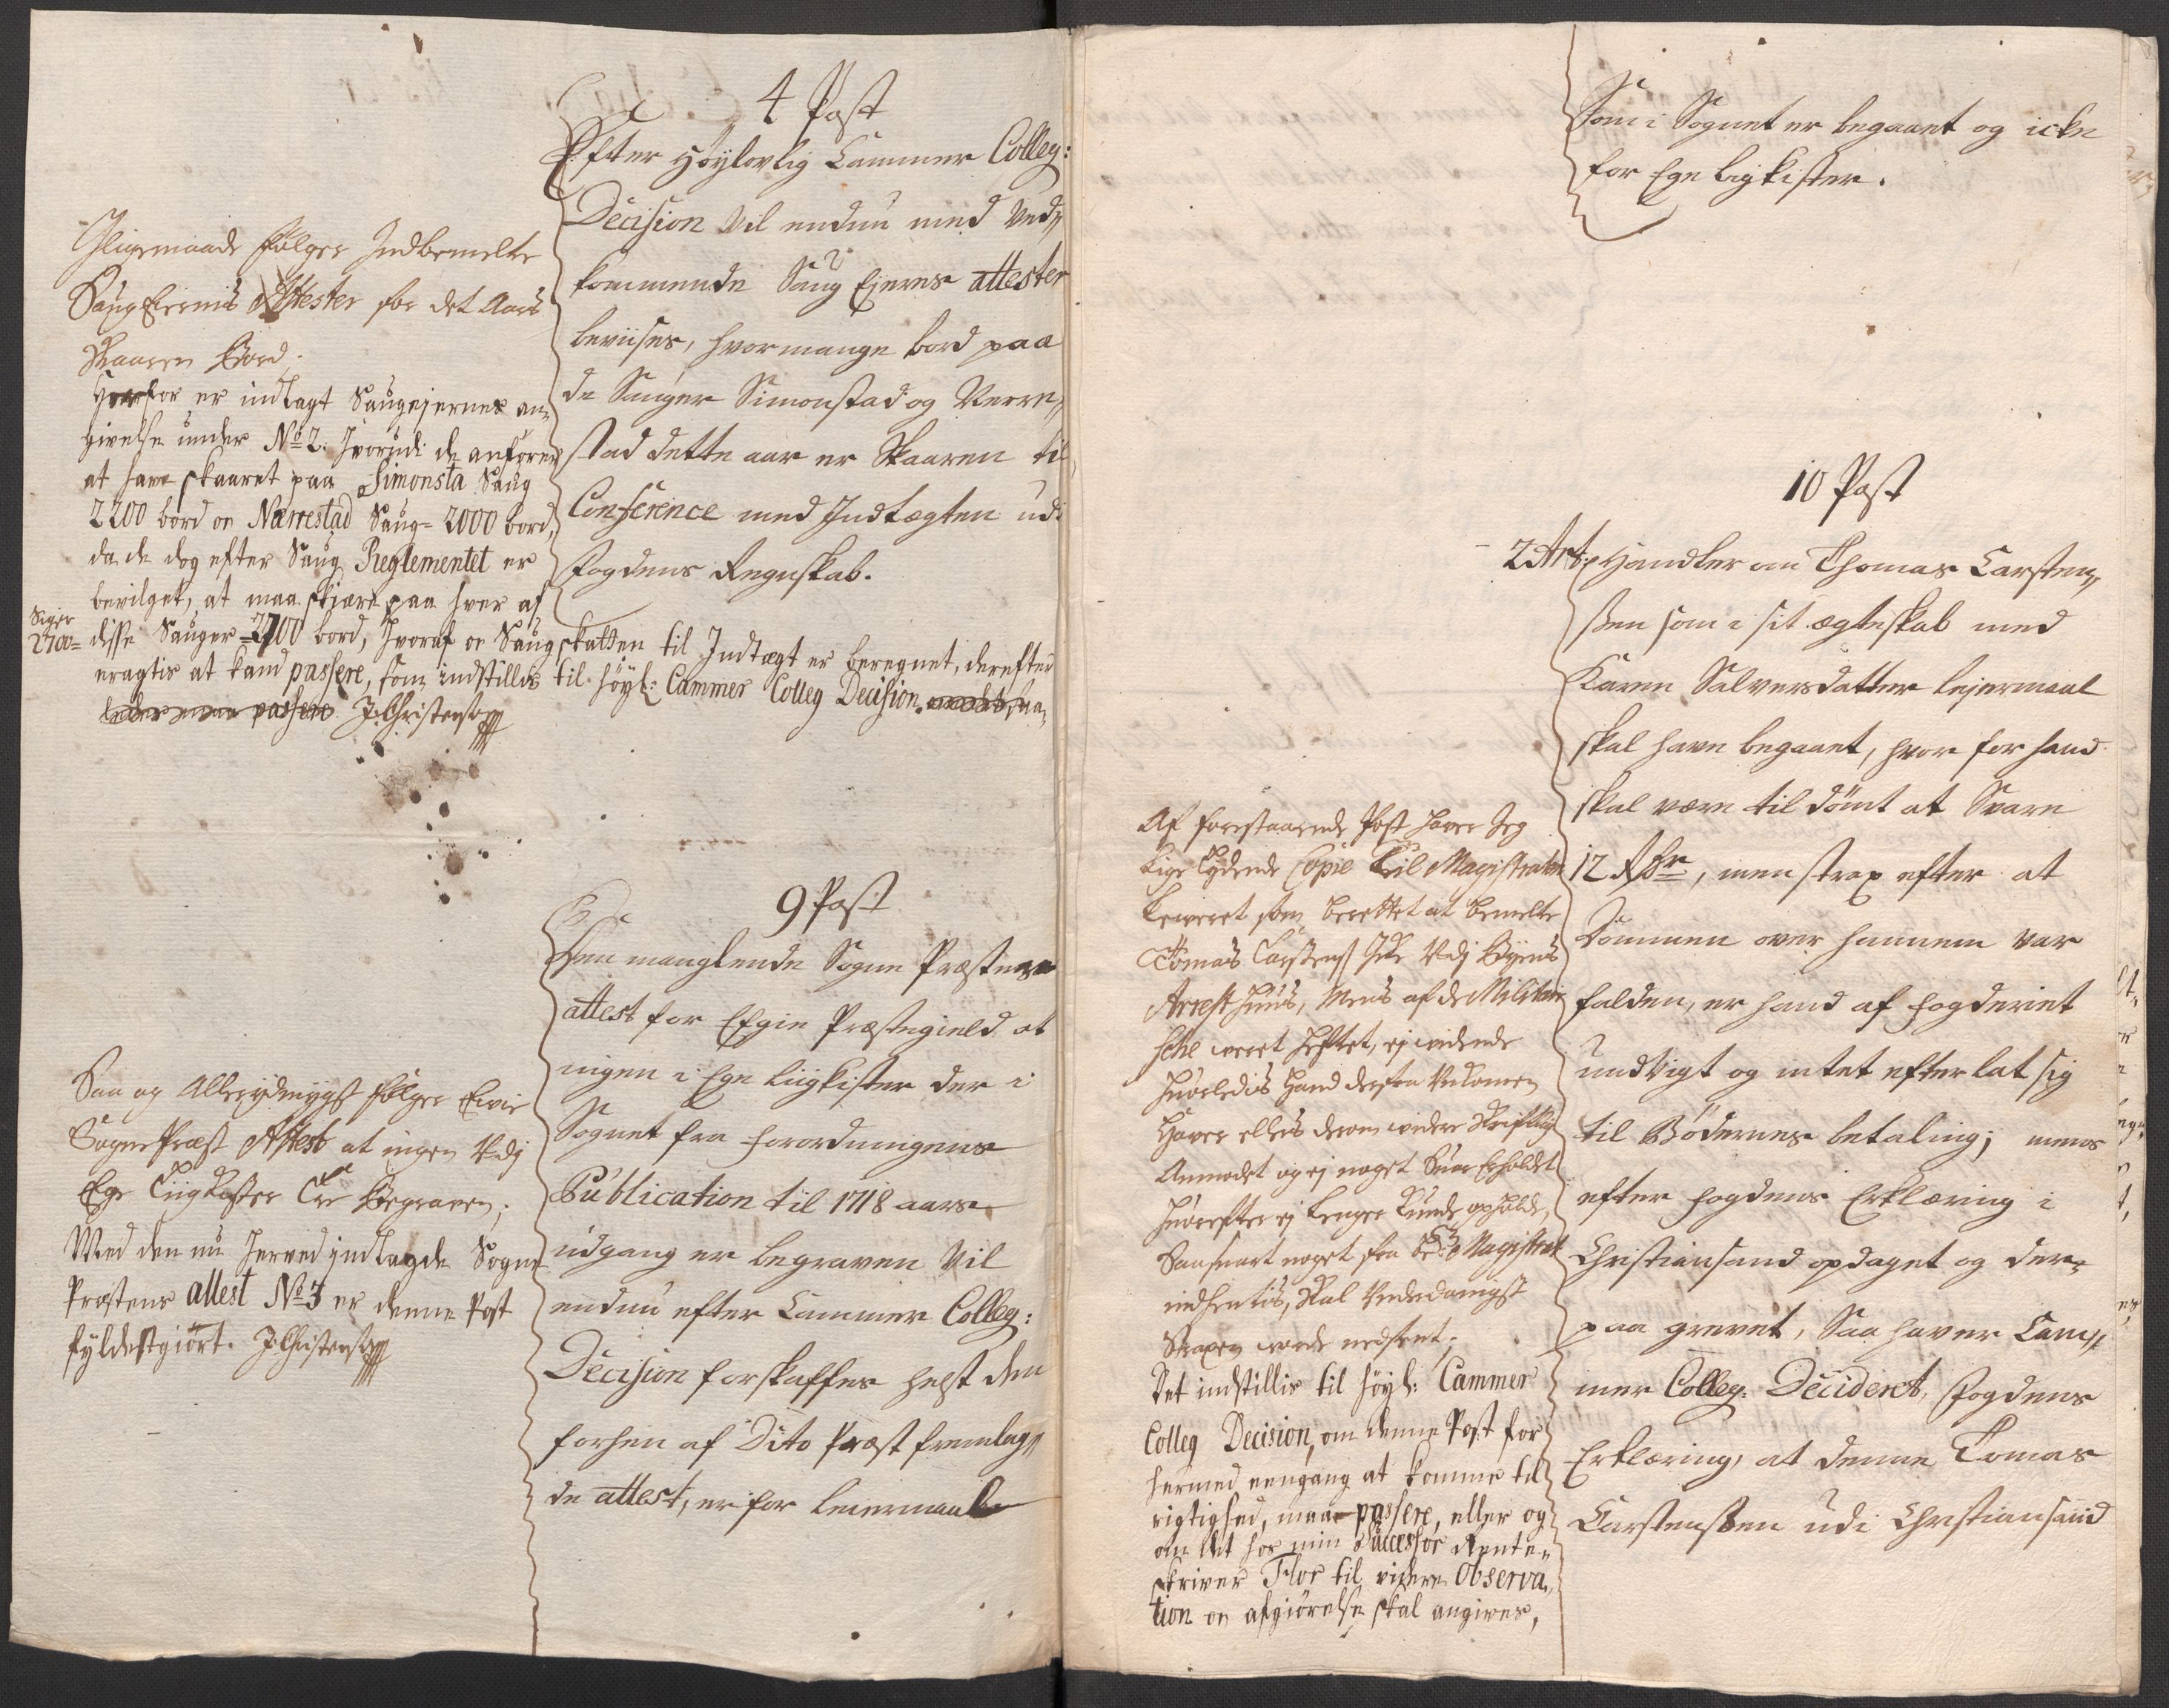 4 Post
Efter Höylovlig Cammer Colleg:
Decision vil endnu med ved„
kommende Saug Ejernes attester
beviises, hvormange bord paa
de Sauger Simonstad og Nerre„
stad dette aar er Skaaren til
Conference med Indtægten udi
Fogdens Regnskab.
Jligemaade følger Indbemelte
Saug Eiernis Attester for det Aars
Skaaren Bord.
Herfor er indlagt Saugejernes an„
givelse under No 2. hvorudi de anfører
at have skaaret paa Simonsta Saug
2200 bord oc Nærrestad Saug= 2000 bord,
da de dog efter Saug Reglementet er
bevilget, at maa skiære paa hver af
Siger
2700=
disse Sauger 2700 bord, hvoraf oc Saugskatten til Indtægt er beregnet, derefter
eragtis at kand passere, som indstillis til höyl: Cammer Colleg Decision.
maa passere J: Christensen
9 Post
Den manglende Sogne Præstens
attest for Efgie Præstegield at
ingen i Ege Liigkister der i
Sognet fra forordningens
Publication til 1718 aars
udgang er begraven vil
endnu efter Cammer Colleg:
Decision forskaffes helst den
forhen af Dito Præst fremlag„
de attest, er for leiermaal
Saa og Allerydmygst følger
Sogne Præst Attest at ingen udj
Ege Liig Kister Er Begraven,
Med den nu herved indlagde Sogne
Præstens attest No 3 er denne Post
fyldestgiört. J: Christensen
Som i Sognet er begaaet og icke
for Ege ligkister.
10 Post
2 Art: Handler om Thomas Carsten„
ßen som i sit ægteskab med
Karen Salversdatter lejermaal
skal have begaaet, hvor for hand
skal være til dömt at Svare
12 Rdr, men strax efter at
Dommen over hannem var
falden, er hand af fogderiet
undvigt og intet efterlat sig
til Bödernes betaling; mens
efter fogdens Erklæring i
Christiansand opdaget og der„
paa grevet, Saa haver Cam„
mer Colleg: Decideret, Fogdens
Erklæring, at denne Tomas
Carstenßen udi Christiansand
Af forestaaende Post haver Jeg
lige Lydende Copie til Magistraten
leveret som berettet at bemelte
Tomas Carstens: Icke udj Byens
Arrest huus, Mens af de Militair
iche veret heftet, ej vidende
huorledis Hand derfra Undkomen
Haver ellers derom videre Skriftlig
Anmodet og ej noget Svar Erholdet
huorefter ej lenger kunde opholde,
Saasnart noget fra bem:te Magistrat
indhentis, skal Underdanigst
Straxen vorde nedsent;
Det indstillis til höyl: Cammer
Colleg Decision, om denne Post for
hermed eengang at komme til
rigtighed, maae passere, eller og
om det hos min Successor Rente„
skriver Flor til videre Observa„
tion oc afgiörelse skal angives,